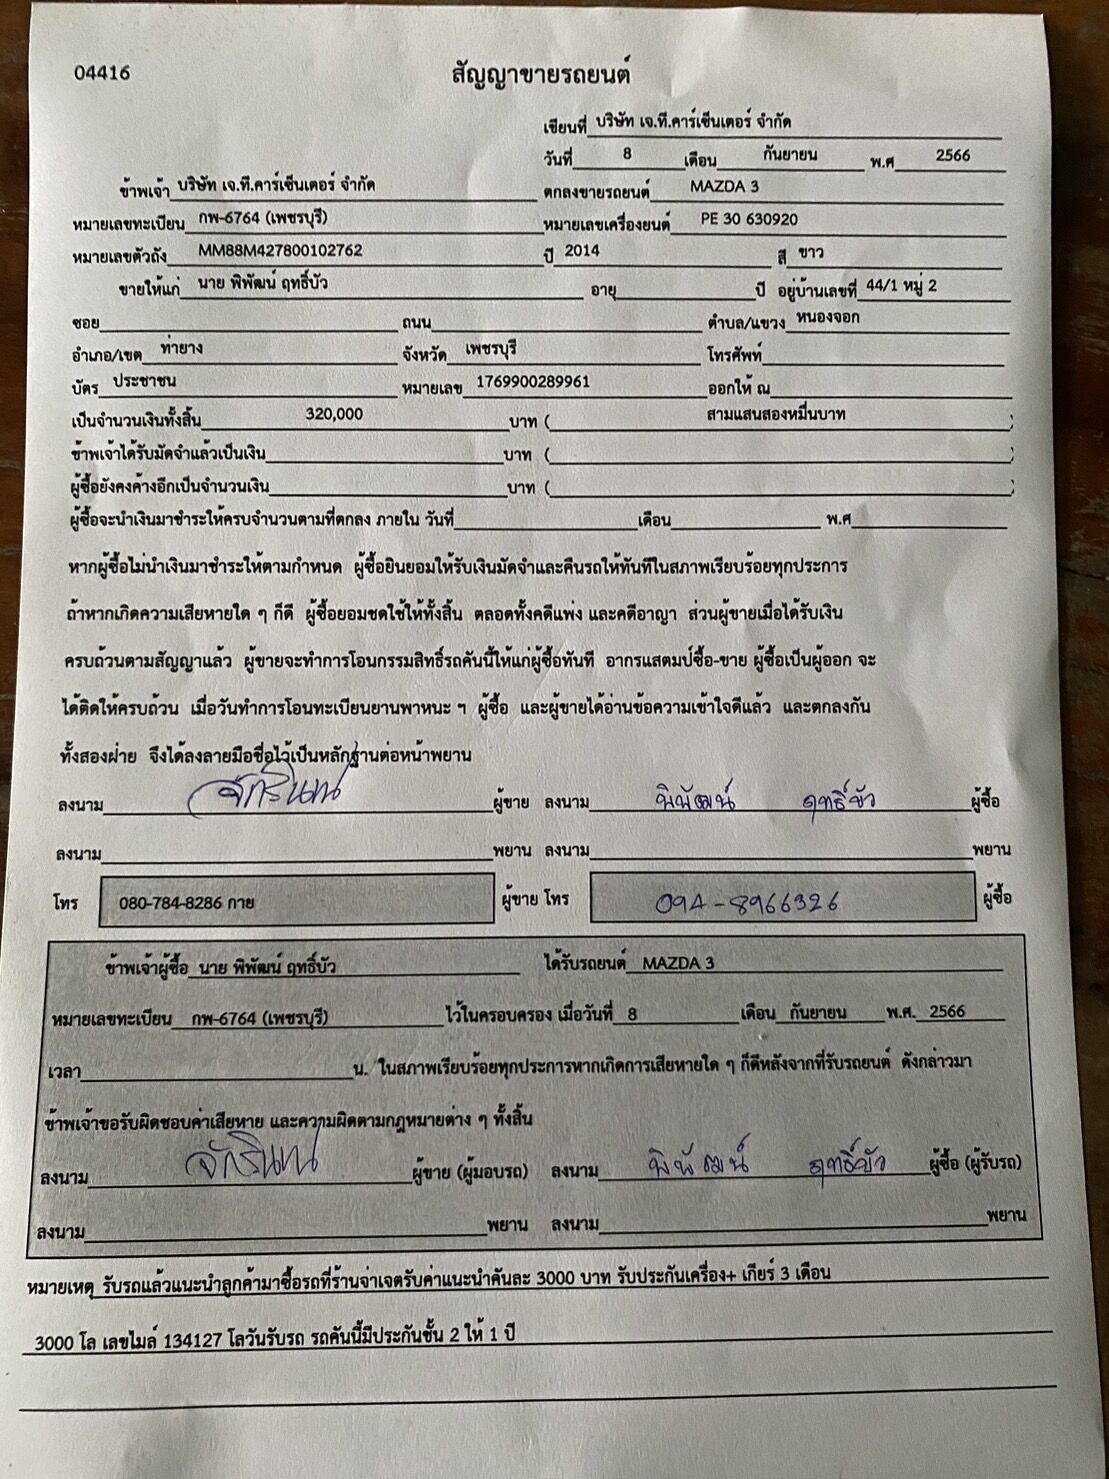 04416
สัญญาขายรถยนต์
เขียนที่ บริษัท เจ.ที.คาร์เซ็นเตอร์ จำกัด
วันที่ 8 เดือน กันยายน พ.ศ 2566
ข้าพเจ้า บริษัท เจ.ที.คาร์เซ็นเตอร์ จำกัด ตกลงขายรถยนต์ MAZDA 3
หมายเลขทะเบียน กพ-6764 (เพชรบุรี) หมายเลขเครื่องยนต์ PE 30 630920
หมายเลขตัวถัง MM88M427800102762 ปี 2014 สี ขาว
ขายให้แก่ นาย พิพัฒน์ ฤทธิ์บัว อายุ ปี อยู่บ้านเลขที่ 44/1 หมู่ 2
ซอย ถนน ตำบล/แขวง หนองจอก
อำเภอ/เขต ท่ายาง จังหวัด เพชรบุรี โทรศัพท์
บัตร ประชาชน หมายเลข 1769900289961 ออกให้ ณ
เป็นจำนวนเงินทั้งสิ้น 320,000 บาท ( สามแสนสองหมื่นบาท )
ข้าพเจ้าได้รับมัดจำแล้วเป็นเงิน บาท ( )
ผู้ซื้อยังคงค้างอีกเป็นจำนวนเงิน บาท ( )
ผู้ซื้อจะนำเงินมาชำระให้ครบจำนวนตามที่ตกลง ภายใน วันที่ เดือน พ.ศ
หากผู้ซื้อไม่นำเงินมาชำระให้ตามกำหนด ผู้ซื้อยินยอมให้รับเงินมัดจำและคืนรถให้ทันทีในสภาพเรียบร้อยทุกประการ
ถ้าหากเกิดความเสียหายใด ๆ ก็ดี ผู้ซื้อยอมชดใช้ให้ทั้งสิ้น ตลอดทั้งคดีแพ่ง และคดีอาญา ส่วนผู้ขายเมื่อได้รับเงิน
ครบถ้วนตามสัญญาแล้ว ผู้ขายจะทำการโอนกรรมสิทธิ์รถคันนี้ให้แก่ผู้ซื้อทันที อากรแสตมป์ซื้อ-ขาย ผู้ซื้อเป็นผู้ออก จะ
ได้ติดให้ครบถ้วน เมื่อวันทำการโอนทะเบียนยานพาหนะ ฯ ผู้ซื้อ และผู้ขายได้อ่านข้อความเข้าใจดีแล้ว และตกลงกัน
ทั้งสองฝ่าย จึงได้ลงลายมือชื่อไว้เป็นหลักฐานต่อหน้าพยาน
ลงนาม จักรินทน์ ผู้ขาย ลงนาม พิพัฒน์ ฤทธิ์บัว ผู้ซื้อ
ลงนาม พยาน ลงนาม พยาน
โทร 080-784-8286 กาย ผู้ขาย โทร 094-8966326 ผู้ซื้อ
ข้าพเจ้าผู้ซื้อ นาย พิพัฒน์ ฤทธิ์บัว ได้รับรถยนต์ MAZDA 3
หมายเลขทะเบียน กพ-6764 (เพชรบุรี) ไว้ในครอบครอง เมื่อวันที่ 8 เดือน กันยายน พ.ศ. 2566
เวลา น. ในสภาพเรียบร้อยทุกประการหากเกิดการเสียหายใด ๆ ก็ดีหลังจากที่รับรถยนต์ ดังกล่าวมา
ข้าพเจ้าขอรับผิดชอบค่าเสียหาย และความผิดตามกฎหมายต่าง ๆ ทั้งสิ้น
ลงนาม จักรินทน์ ผู้ขาย (ผู้มอบรถ) ลงนาม พิพัฒน์ ฤทธิ์บัว ผู้ซื้อ (ผู้รับรถ)
ลงนาม พยาน ลงนาม พยาน
หมายเหตุ รับรถแล้วแนะนำลูกค้ามาซื้อรถที่ร้านจ่าเจตรับค่าแนะนำคันละ 3000 บาท รับประกันเครื่อง+ เกียร์ 3 เดือน
3000 โล เลขไมล์ 134127 โลวันรับรถ รถคันนี้มีประกันชั้น 2 ให้ 1 ปี